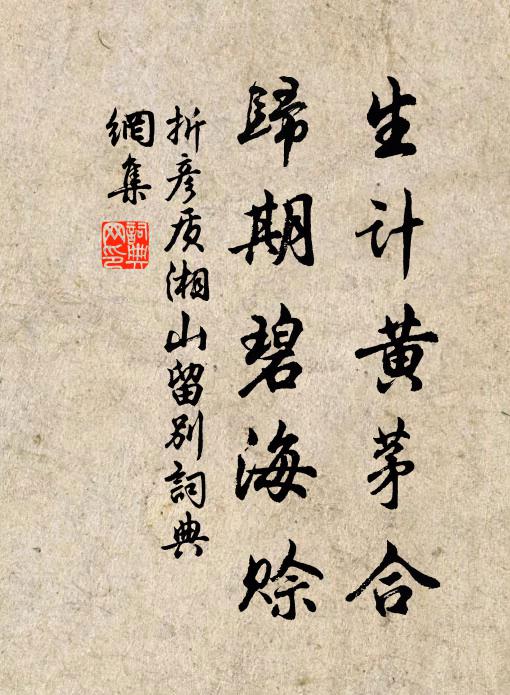 生计黄茅合
歸期碧海赊
折彦质湘山留别詞典
網集
詞典
网印